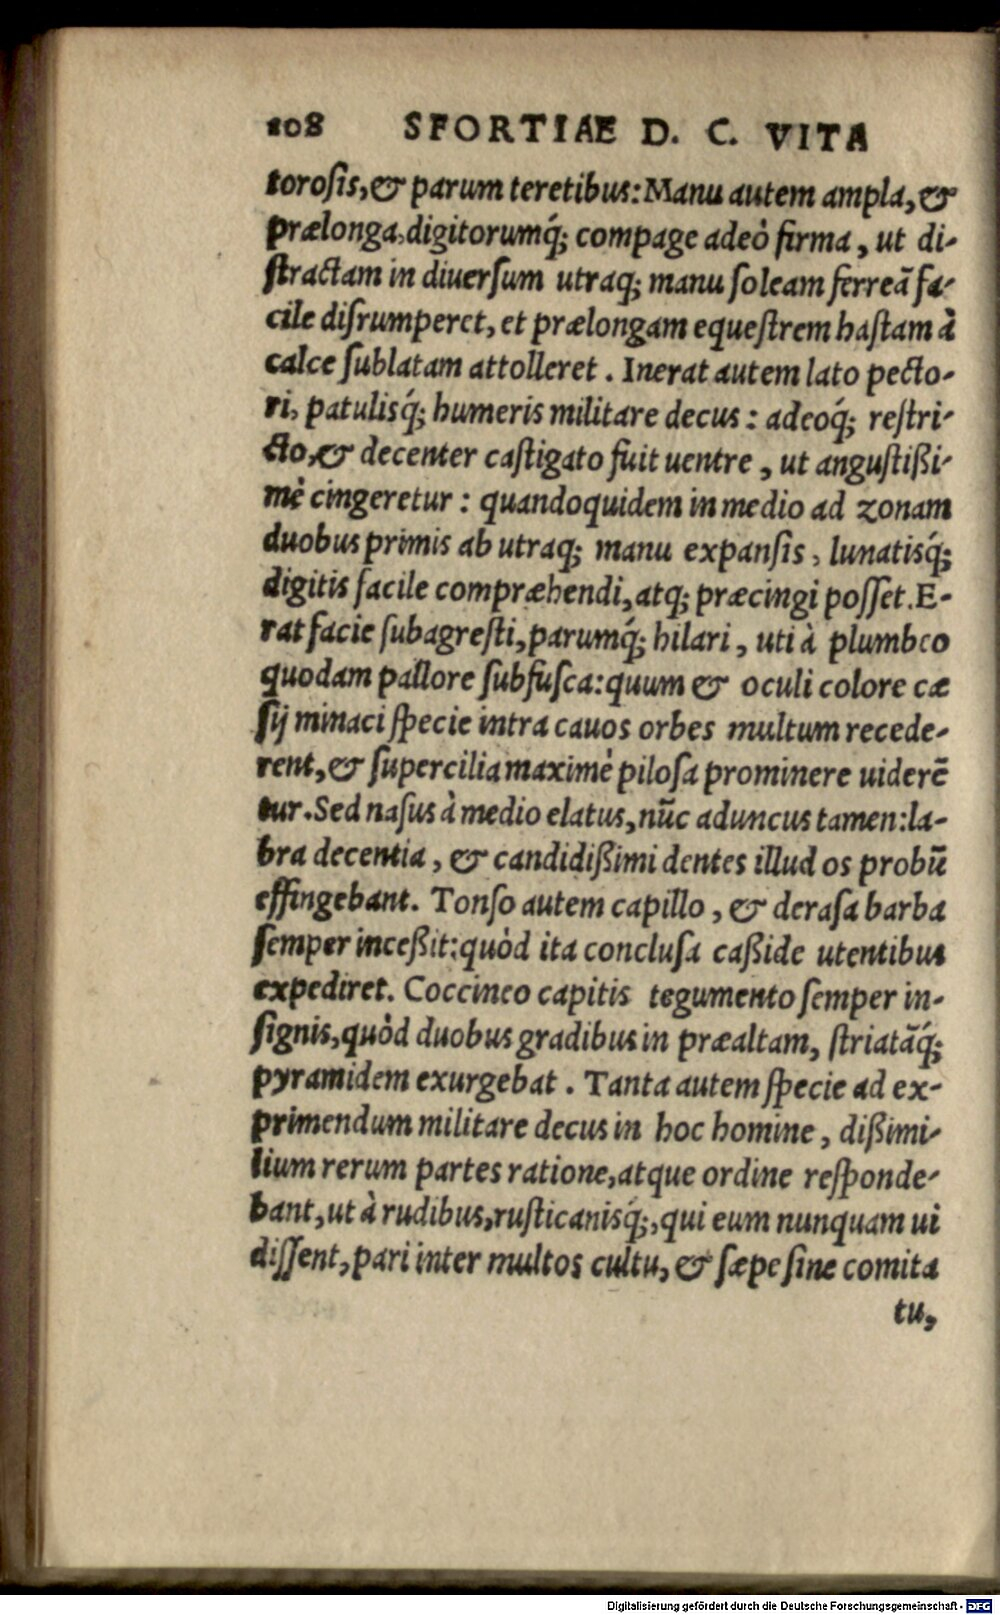 108 SFORTIAE D. C. VITA
torosis,& parum teretibus: Manu autem ampla, &
prælonga,digitorumq́; compage adeò firma, ut di-
stractam in diuersum utraq; manu soleam ferreã fa-
cile disrumperet, et prælongam equestrem hastam à
calce sublatam attolleret. Inerat autem lato pecto-
ri, patulisq́; humeris militare decus: adeoq́; restri-
cto,& decenter castigato fuit uentre, ut angustißi-
mè cingeretur: quandoquidem in medio ad zonam
duobus primis ab utraq; manu expansis, lunatisq́;
digitis facile compræhendi, atq; præcingi posset. E-
rat facie subagresti, parumq́; hilari, uti à plumbeo
quodam pallore subfusca: quum & oculi colore cæ
sij minaci specie intra cauos orbes multum recede-
rent,& supercilia maximè pilosa prominere uiderẽ
tur. Sed nasus à medio elatus, nũc aduncus tamen: la-
bra decentia, & candidißimi dentes illud os probũ
effingebant. Tonso autem capillo, & derasa barba
semper inceßit: quòd ita conclusa caßide utentibus
expediret. Coccineo capitis tegumento semper in-
signis, quòd duobus gradibus in præaltam, striatãq́;
pyramidem exurgebat. Tanta autem specie ad ex-
primendum militare decus in hoc homine, dißimi-
lium rerum partes ratione, atque ordine responde-
bant, ut à rudibus, rusticanisq́;, qui eum nunquam ui
dissent, pari inter multos cultu, & sæpe sine comita
tu,
Digitalisierung gefördert durch die Deutsche Forschungsgemeinschaft - DFG